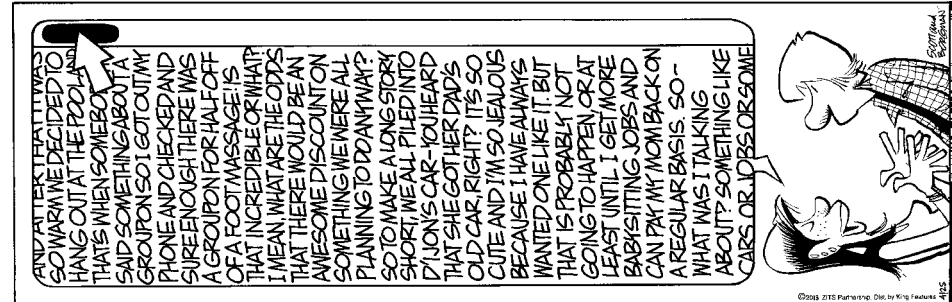 AND AFTER THAT IT WAS
SO WARM WE DECIDED TO
HANG OUT AT THE POOL AND
THAT'S WHEN SOMEBODY
SAID SOMETHING ABOUT A
GROUPON SO I GOT OUT MY
PHONE AND CHECKED AND
SURE ENOUGH THERE WAS
A GROUPON FOR HALF OFF
OF A FOOT MASSAGE! IS
THAT INCREDIBLE OR WHAT?
I MEAN, WHAT ARE THE ODDS
THAT THERE WOULD BE AN
AWESOME DISCOUNT ON
SOMETHING WE WERE ALL
PLANNING TO DO ANYWAY?
SO TO MAKE A LONG STORY
SHORT, WE ALL PILED INTO
D'IJON'S CAR-YOU HEARD
THAT SHE GOT HER DAD'S
OLD CAR, RIGHT? IT'S SO
CUTE AND I'M SO JEALOUS
BECAUSE I HAVE ALWAYS
WANTED ONE LIKE IT. BUT
THAT IS PROBABLY NOT
GOING TO HAPPEN, OR AT
LEAST UNTIL I GET MORE
BABYSITTING JOBS AND
CAN PAY MY MOM BACK ON
A REGULAR BASIS. SO-
WHAT WAS I TALKING
ABOUT? SOMETHING LIKE
CARS OR JOBS OR SOME
SCOTT AND BORGMAN
©2015 ZITS Partnership, Dist. by King Features
4/23